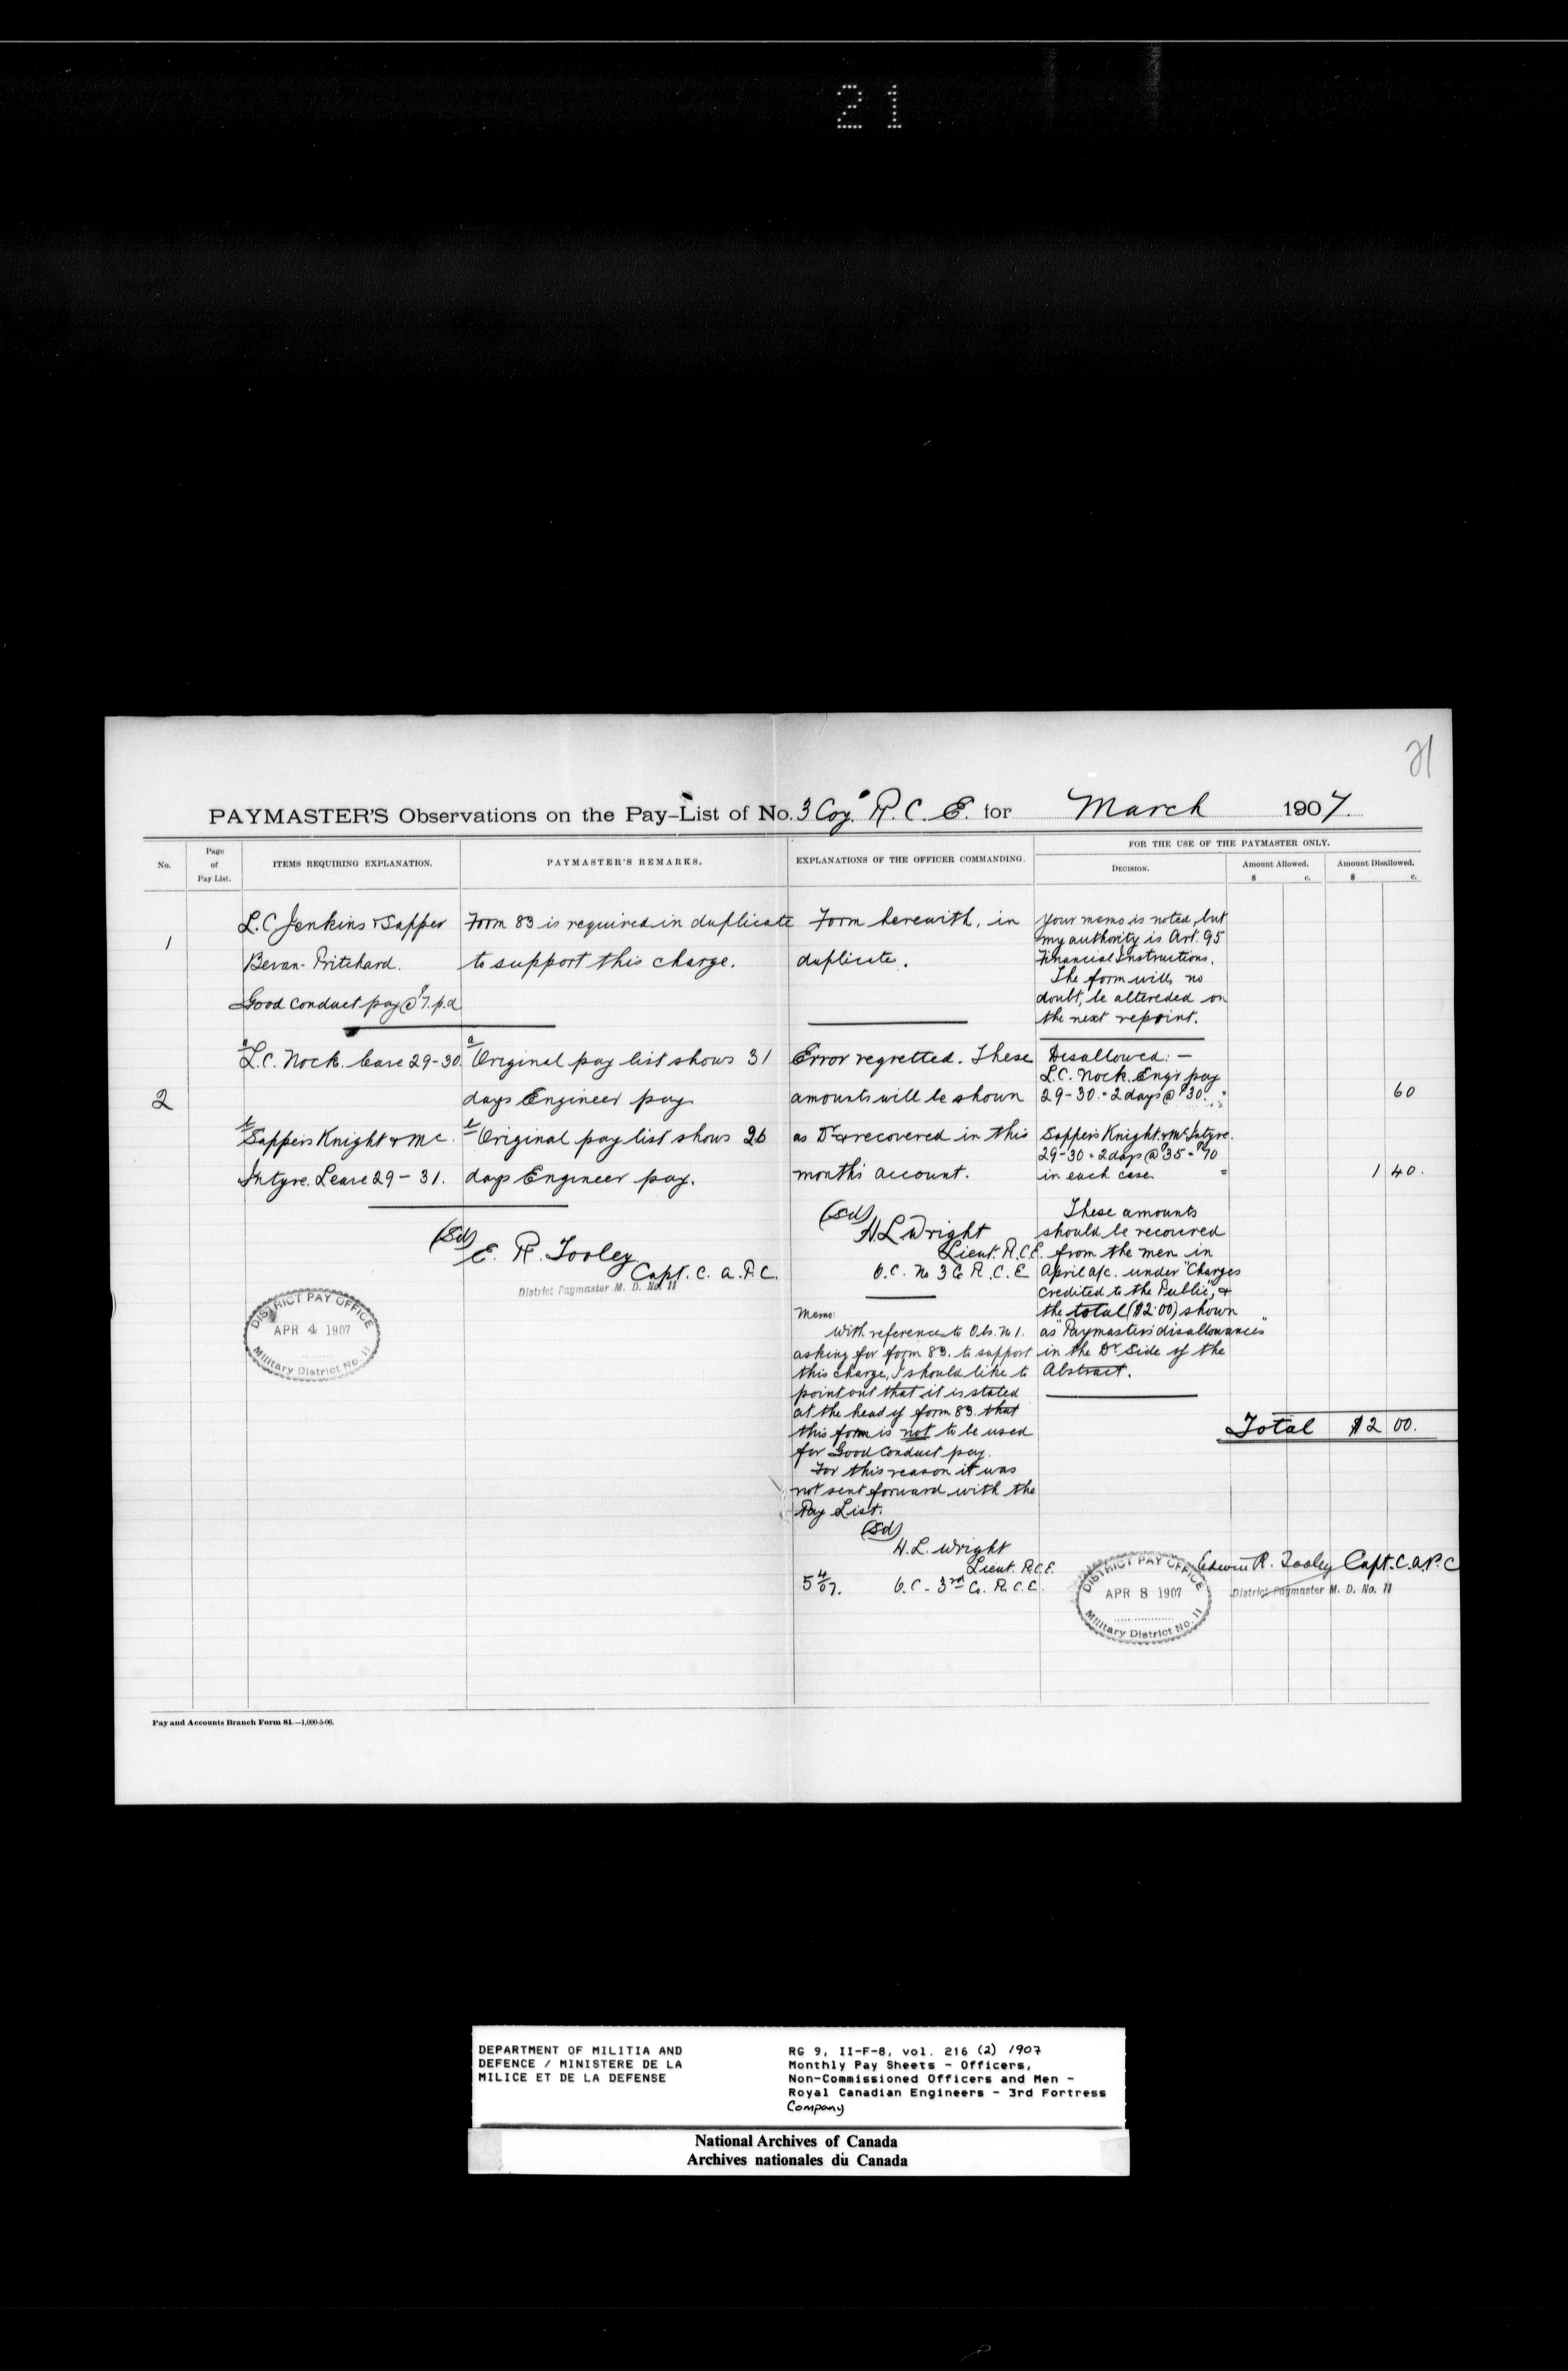 21
21
PAYMASTER'S Observations on the Pay-List of No. 3 Coy. R. C. E. for March 1907.
No.
Page
of
Pay List.
ITEMS REQUIRING EXPLANATION.
PAYMASTER'S REMARKS.
EXPLANATIONS OF THE OFFICER COMMANDING.
FOR THE USE OF THE PAYMASTER ONLY.
DECISION.
Amount Allowed.
$ c.
Amount Disallowed.
$ c.
1
L.C. Jenkins & Sapper
Bevan-Pritchard.
Good conduct pay @ 7. p.d
Form 83 is required in duplicate
to support this charge.
Form herewith, in
duplicate.
Your memo is noted, but
my authority is Art. 95
Financial Instructions.
The form will, no
doubt, be altereded on
the next repoint.
2
a L.C. Nock. Leave 29-30.
b Sappers Knight & Mc.
Intyre. Leave 29-31.
a Original pay list shows 31
days Engineer pay
b Original pay list shows 26
days Engineer pay.
(Sd) E. R. Tooley
Capt. C. A. P. C.
District Paymaster M. D. No. 11
DISTRICT PAY OFFICE
APR 4 1907
Military District No. 11
Error regretted. These
amounts will be shown
as Dr & recovered in this
months account.
(Sd)
H L Wright
Lieut. R.C.E.
O.C. No 3 Co R.C.E
Memo:
With reference to Obs. No 1.
asking for form 83. to support
this charge, I should like to
point out that it is stated
at the head of form 83. that
this form is not to be used
for Good Conduct pay.
For this reason it was
not sent forward with the
Pay List.
(Sd)
H. L. Wright
Lieut. R.C.E.
5 4/07. O.C. - 3rd Co. R.C.E.
Disallowed: —
L.C. Nock. Engr pay
29-30. = 2 days @ 30. = 60
Sappers Knight. & McIntyre.
29-30 = 2 days @ 35 = 70
in each case = 1 40.
These amounts
should be recovered
from the men in
April a/c. under "Charges
credited to the Public", &
the total ($2.00) shown
as "Paymaster's disallowances"
in the Dr. Side of the
Abstract.
Total $2 00.
DISTRICT PAY OFFICE
APR 8 1907
Military District No. 11
Edwin R. Tooley Capt. C.A.P.C
District Paymaster M. D. No. 11
Pay and Accounts Branch Form 81.—1,000-5-06.
DEPARTMENT OF MILITIA AND
DEFENCE / MINISTERE DE LA
MILICE ET DE LA DEFENSE
RG 9, II-F-8, vol. 216 (2) 1907
Monthly Pay Sheets - Officers,
Non-Commissioned Officers and Men -
Royal Canadian Engineers - 3rd Fortress
Company
National Archives of Canada
Archives nationales du Canada